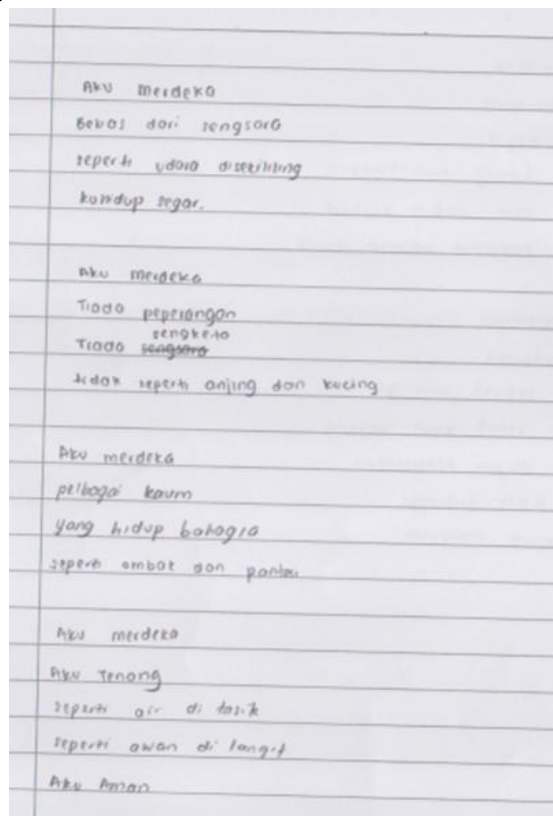 Aku merdeka
Bebas dari sengsara
seperti udara disekililing
kuhidup segar.
Aku merdeka
Tiada peperangan
Tiada sengketa
tidak seperti anjing dan kucing
Aku merdeka
pelbagai kaum
yang hidup bahagia
seperti ombak dan pantai
Aku merdeka
Aku Tenang
seperti air di tasik
seperti awan di langit
Aku Aman